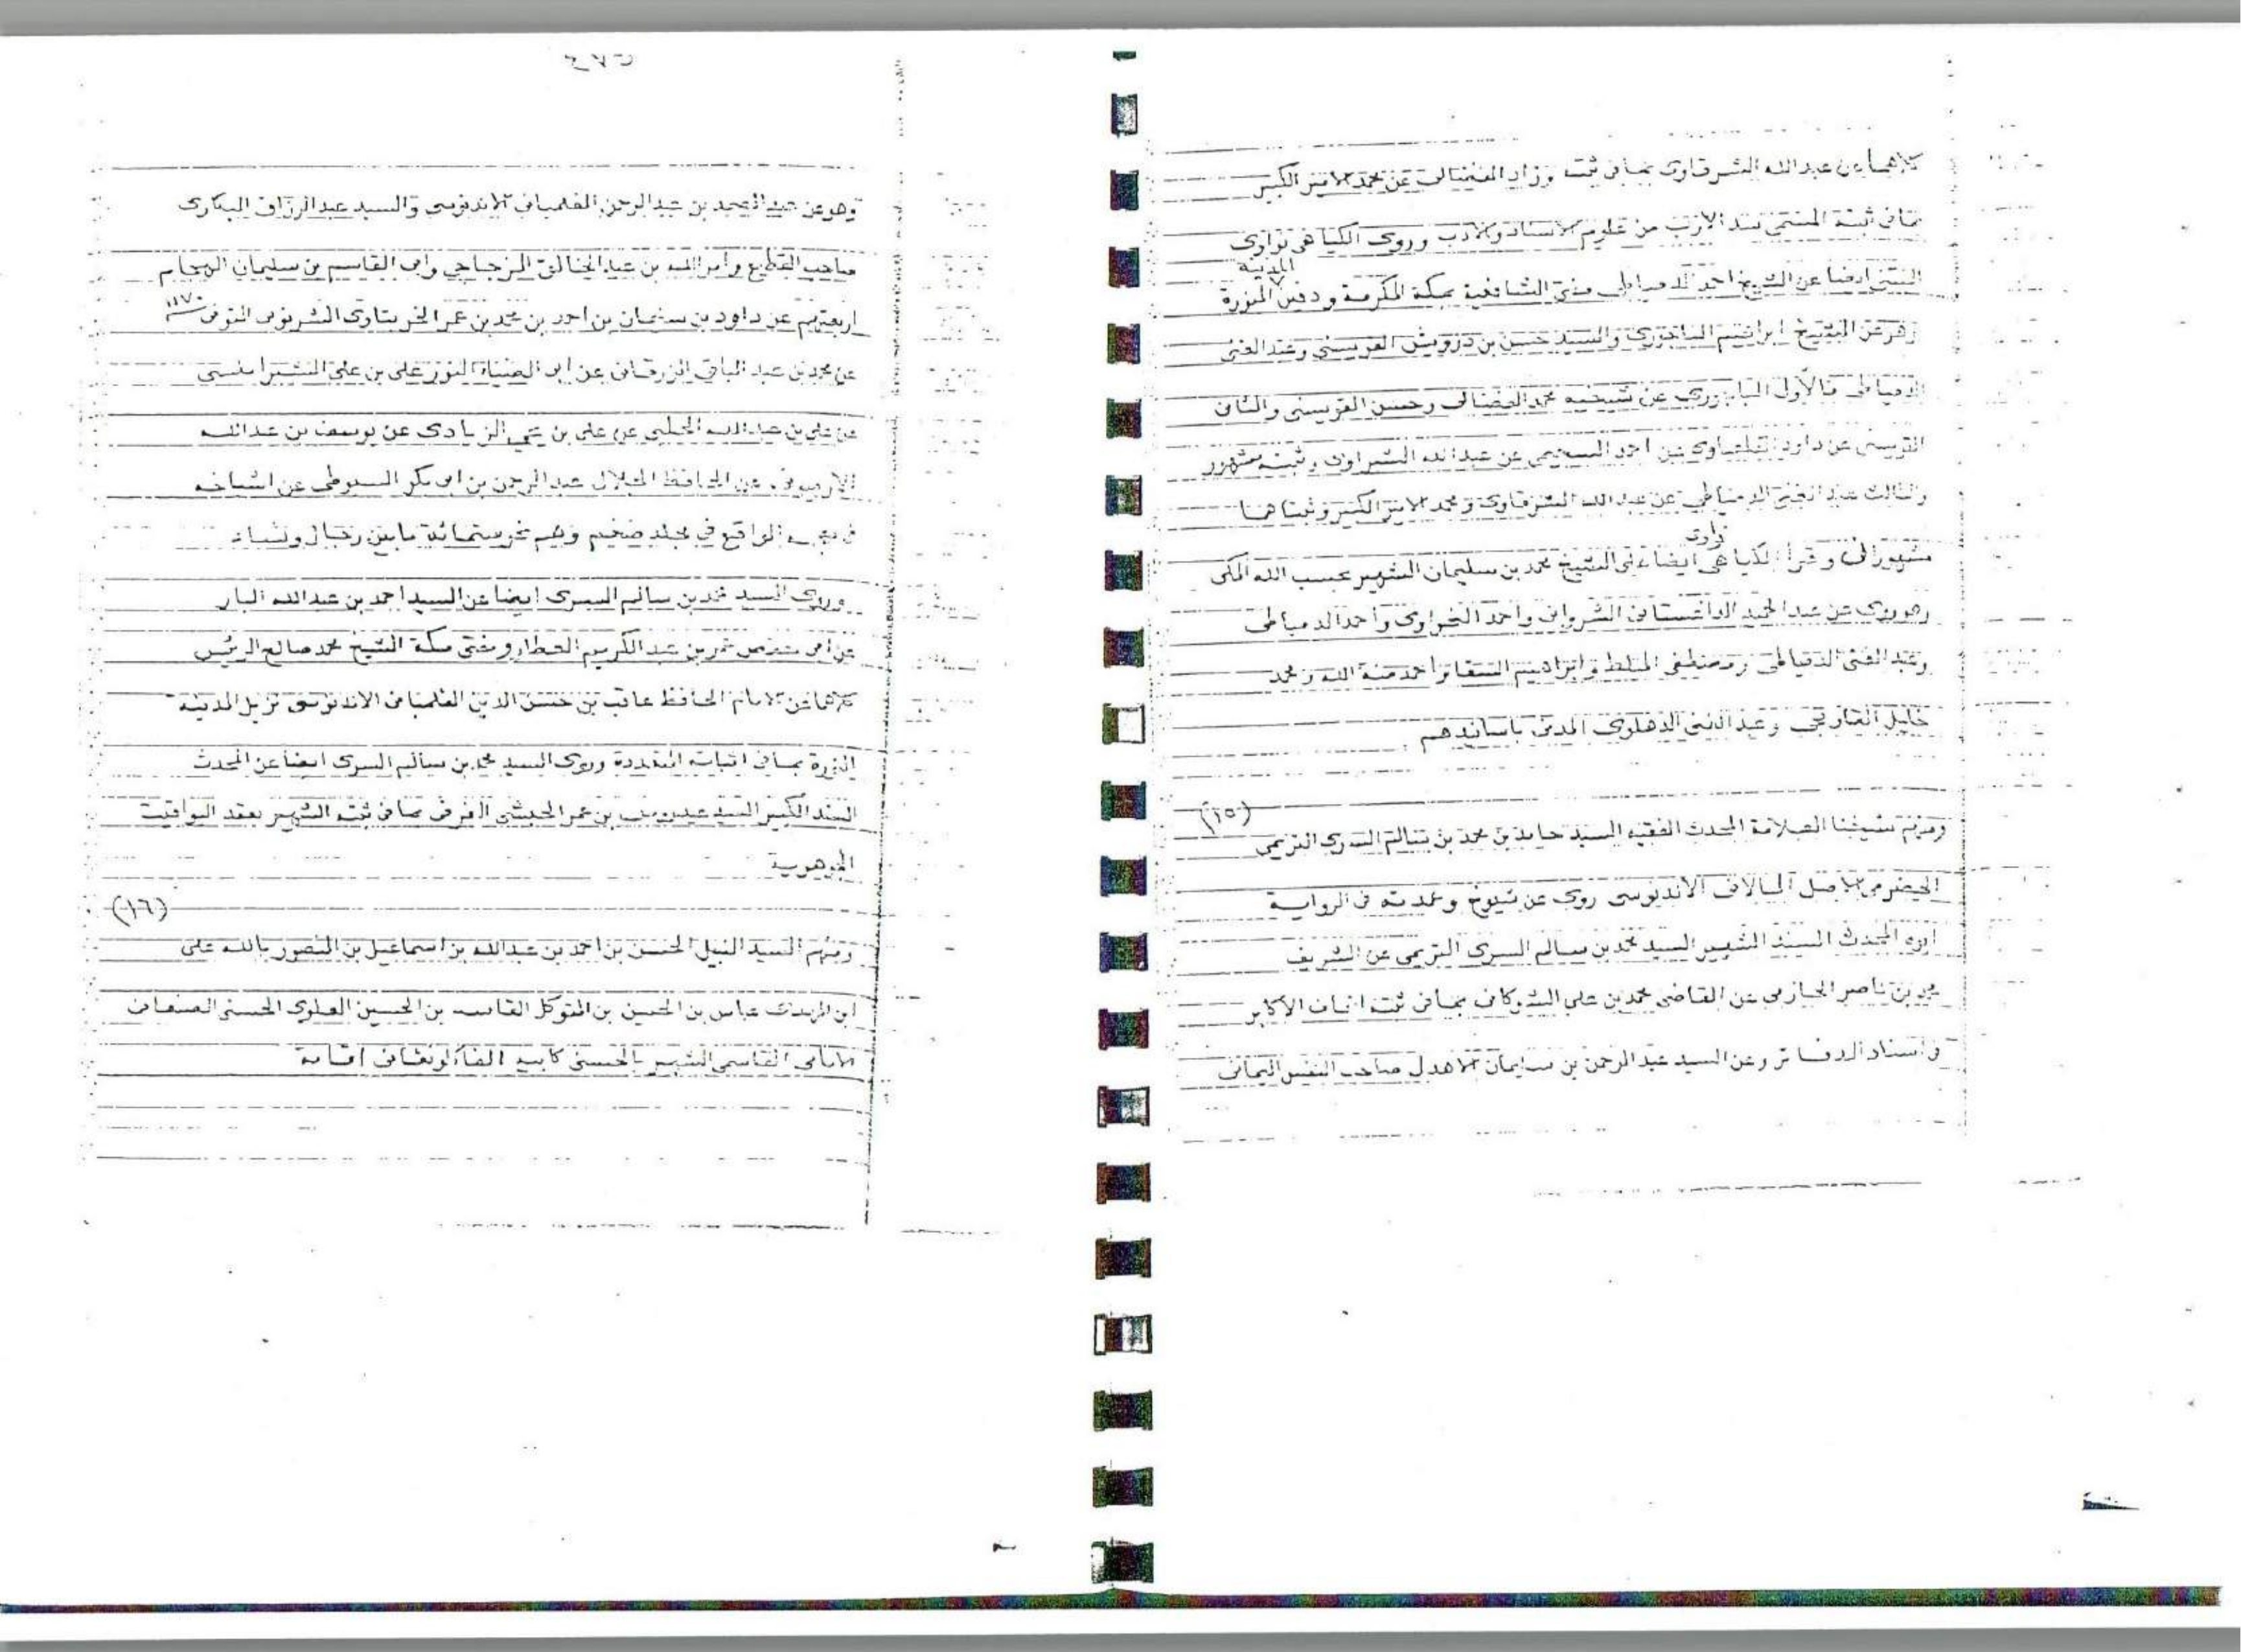 كلاهما عن عبدالله الشرقاوى بما فى ثبته وزاد الفضالى عن محمد الامير الكبير
بما فى ثبته المنتمى سد الأرب من علوم الاسناد والادب وروى الكياهى نواوى
المدينة
البنتنى ايضا عن الشيخ احمد الدمياطى مفتى الشافعية بمكة المكرمة ودفين المنورة
وهو عن الشيخ ابراهيم الباجورى والسيد حسن بن درويش القويسنى وعبد الغنى
الدمياطى فالأول الباجورى عن شيخيه محمد الفضالى وحسن القويسنى والثانى
القويسنى عن داود القلعاوى عن احمد السحيمى عن عبدالله الشبراوى وثبته مشهور
والثالث عبد الغنى الدمياطى عن عبدالله الشرقاوى ومحمد الامير الكبير وثبتاهما
نواوى
مشهوران وقرأ الكياهى ايضا على الشيخ محمد بن سليمان الشهير بحسب الله المكى
وهو روى عن عبد الحميد الداغستانى الشروانى واحمد النحراوى واحمد الدمياطى
وعبد الغنى الدمياطى ومصطفى المبلط وابراهيم السقا واحمد منة الله ومحمد
خليل القاوقجى وعبد الغنى الدهلوى المدنى باسانيدهم
(١٥)
ومنهم شيخنا العلامة المحدث الفقيه السيد حامد بن محمد بن سالم السرى التريمى
الحضرمى الاصل المالانى الاندنوسى روى عن شيوخ وعمدته فى الرواية
ابوه المحدث المسند الشهير السيد محمد بن سالم السرى التريمى عن الشريف
محمد بن ناصر الحازمى عن القاضى محمد بن على الشوكانى بما فى ثبته اتحاف الأكابر
فى اسناد الدفاتر وعن السيد عبد الرحمن بن سليمان الاهدل صاحب النفس اليمانى
٢٨٣
وهو عن عبد الصمد بن عبد الرحمن الفلمبانى الاندنوسى والسيد عبد الرزاق البكارى
صاحب القطيع وامر الله بن عبد الخالق المزجاجى وابى القاسم بن سليمان الهجام
اربعتهم عن داود بن سليمان بن احمد بن محمد بن عمر الخربتاوى الشرنوبى المتوفى ١١٧٠
عن محمد بن عبد الباقى الزرقانى عن ابى الضياء النور على بن على الشبراملسى
عن على بن عبدالله الحلبى عن على بن يحيى الزيادى عن يوسف بن عبدالله
الارميونى عن الحافظ الجلال عبد الرحمن بن ابى بكر السيوطى عن اشياخه
فى معجمه الواقع فى مجلد ضخيم وهم نحو ستمائة ما بين رجال ونساء
وروى السيد محمد بن سالم السرى ايضا عن السيد احمد بن عبدالله البار
عن ابى حفص عمر بن عبد الكريم العطار ومفتى مكة الشيخ محمد صالح الرئيس
كلاهما عن الامام الحافظ عاقب بن حسن الدين الفلمبانى الاندنوسى نزيل المدينة
المنورة بما فى اثباته المتعددة وروى السيد محمد بن سالم السرى ايضا عن المحدث
المسند الكبير السيد عيدروس بن عمر الحبشى الغرفى بما فى ثبته الشهير بعقد اليواقيت
الجوهرية
(١٦)
ومنهم السيد النبيل الحسن بن احمد بن عبدالله بن اسماعيل بن المنصور بالله على
ابن المهدى عباس بن الحسين بن المتوكل القاسم بن الحسين العلوى الحسنى الصنعانى
الامامى القاسمى الشهير بالحسنى كابيه اقامة